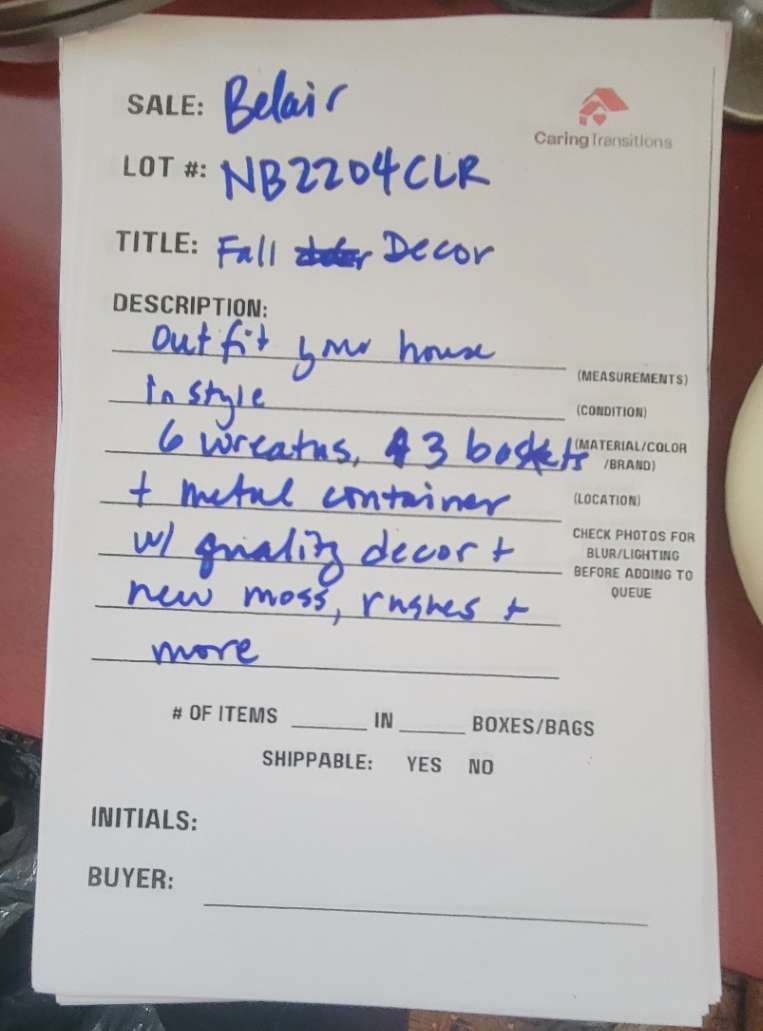 SALE: Belair
CaringTransitions
LOT #: NB2204CLR
TITLE: Fall Decor
DESCRIPTION:
Outfit your house
(MEASUREMENTS)
In style
(CONDITION)
6 wreaths, 3 baskets
(MATERIAL/COLOR
/BRAND)
+ metal container
(LOCATION)
w/ quality decor +
CHECK PHOTOS FOR
BLUR/LIGHTING
BEFORE ADDING TO
QUEUE
new moss, rushes +
more
# OF ITEMS ______ IN ______ BOXES/BAGS
SHIPPABLE: YES NO
INITIALS:
BUYER: